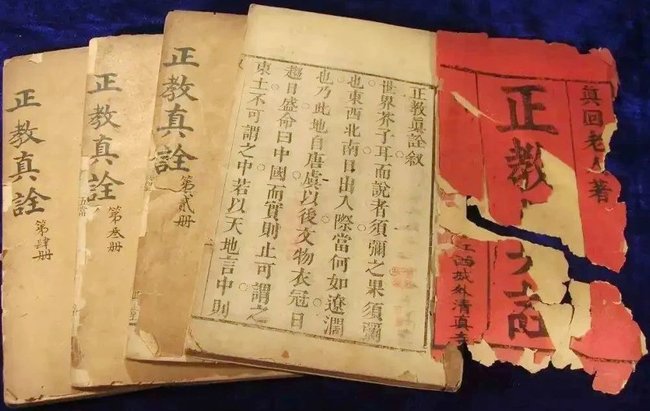 眞回老人著
正教
詮
江西城外清真寺
正教真詮叙
世界芥子耳而說者須彌之果須彌
也東西北南日出入際當何如遼濶
也乃此地自唐虞以後文物衣冠日
趨日盛命曰中國而實則止可謂之
東土不可謂之中若以天地言中則
正教真詮
第貳册
正教真詮
第叁册
正教真詮
第肆册